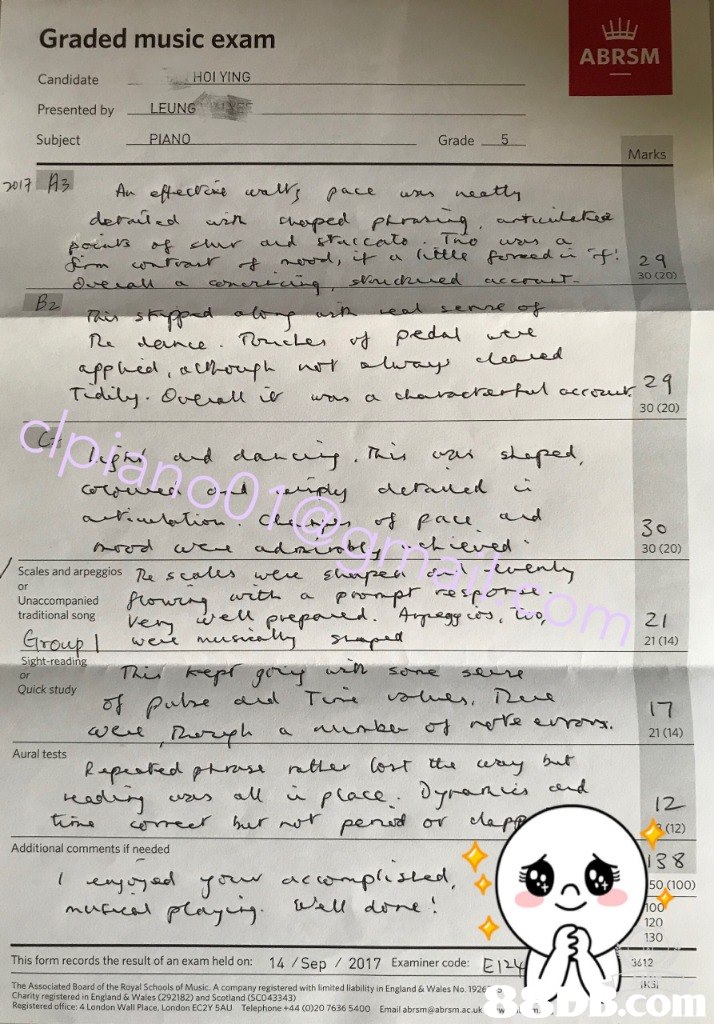 Graded music exam
ABRSM
Candidate HOI YING
Presented by LEUNG
Subject PIANO Grade 5
Marks
2017 A3 An effective waltz pace was neatly
detailed with shaped phrasing, articulated
points of slur and staccato. Trio was a
firm contrast of mood, if a little forced in 'f'! 29
Overall a convincing, structured account. 30 (20)
B2 This stepped along with real sense of
the dance. Touches of pedal were
applied, although not always cleared
Tidily. Overall it was a characterful account 29
30 (20)
Light and dancing, this was shaped,
coloured and detailed in
articulation. Changes of pace and 30
mood were admirably achieved. 30 (20)
Scales and arpeggios The scales were shaped and evenly
or
Unaccompanied flowing with a prompt response.
traditional song Very well prepared. Arpeggios, too, 21
Group 1 were musically shaped 21 (14)
Sight-reading This kept going with some sense
or
Quick study of pulse and Time values. There 17
were, though a number of note errors. 21 (14)
Aural tests Repeated phrase rather lost the way but
reading was all in place. Dynamics and 12
time correct but not period or (12)
Additional comments if needed 138
I enjoyed your accomplished, 50 (100)
musical playing. Well done! 100
120
130
This form records the result of an exam held on: 14 / Sep / 2017 Examiner code: E124 3612
The Associated Board of the Royal Schools of Music. A company registered with limited liability in England & Wales No. 1926
Charity registered in England & Wales (292182) and Scotland (SC043343)
Registered office: 4 London Wall Place, London EC2Y 5AU Telephone +44 (0)20 7636 5400 Email abrsm@abrsm.ac.uk
clpiano001@gmail.com
88DB.com